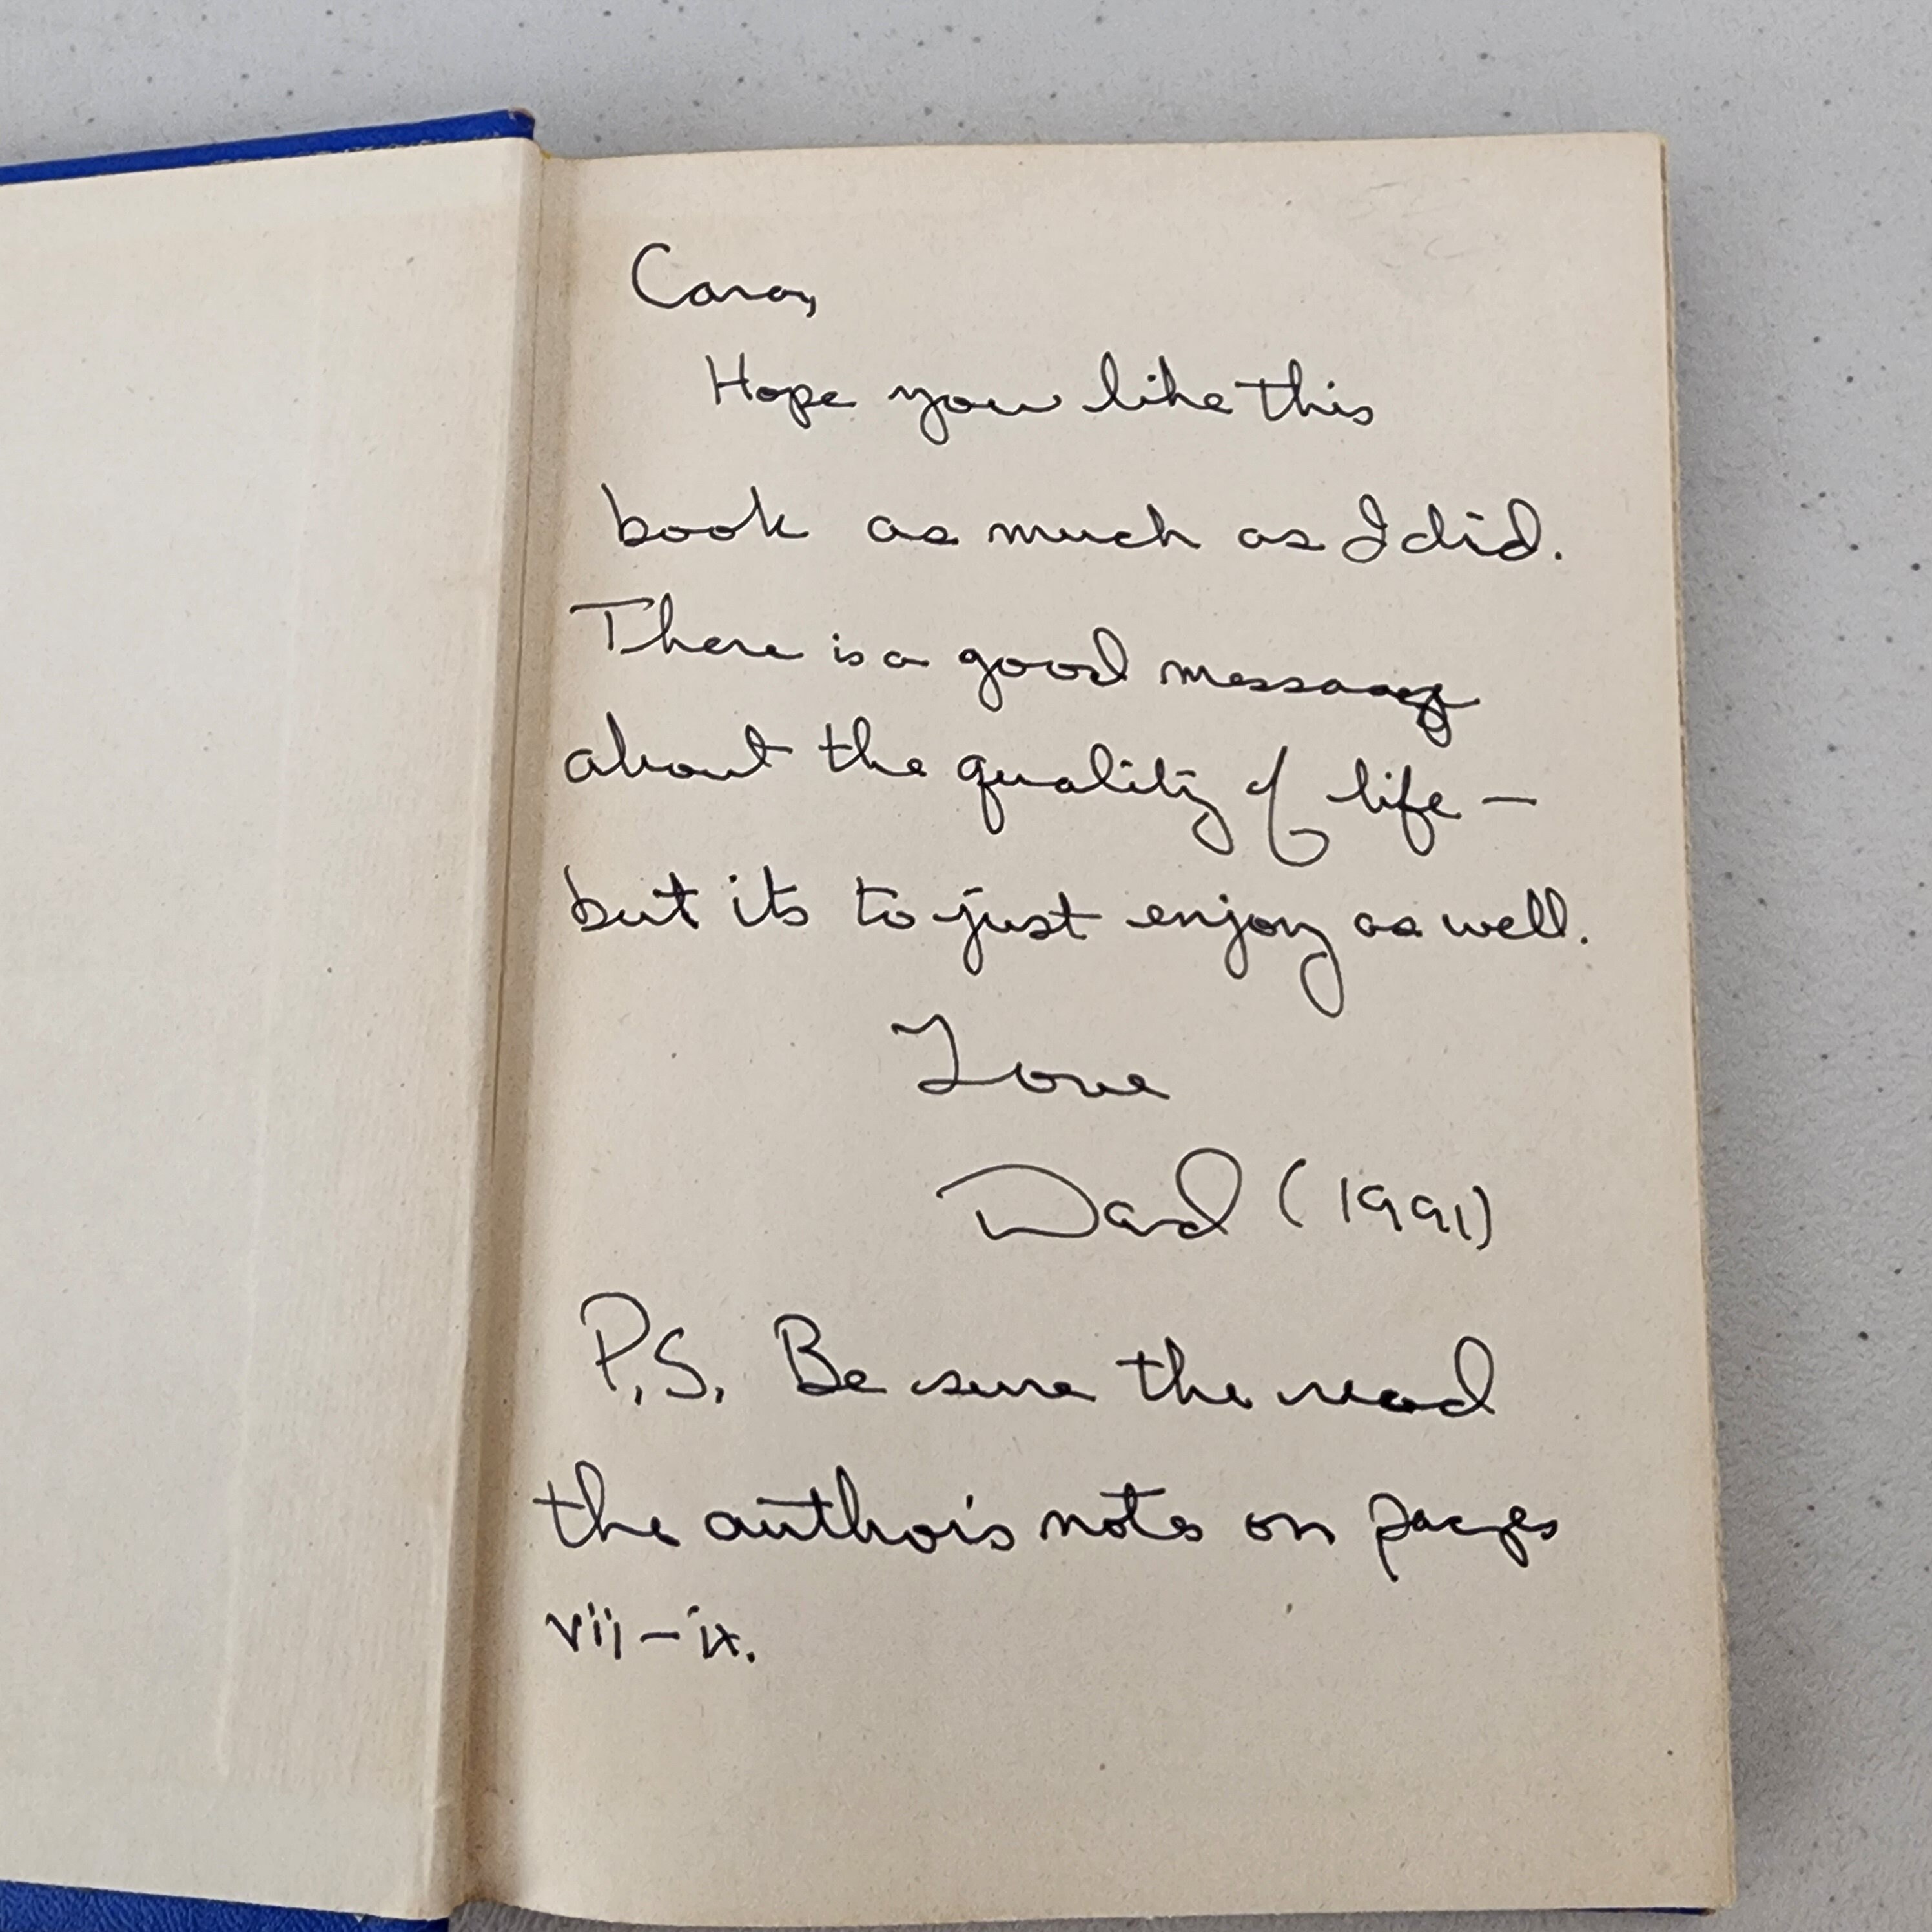 Cara,
Hope you like this
book as much as I did.
There is a good message
about the quality of life —
but its to just enjoy as well.
Love
Dad (1991)
P.S. Be sure the read
the author's notes on pages
vii – ix.